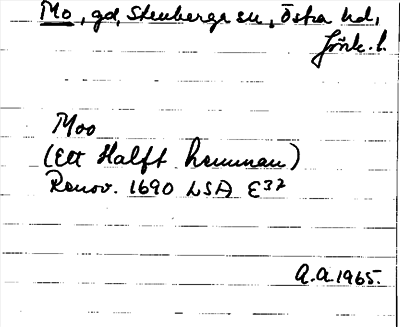 Mo, gd, Stenberga sn, Östra hd,
Jönk. l.
Moo
(Ett Halfft hemman)
Renov. 1690 LSA E37
A.A. 1965.